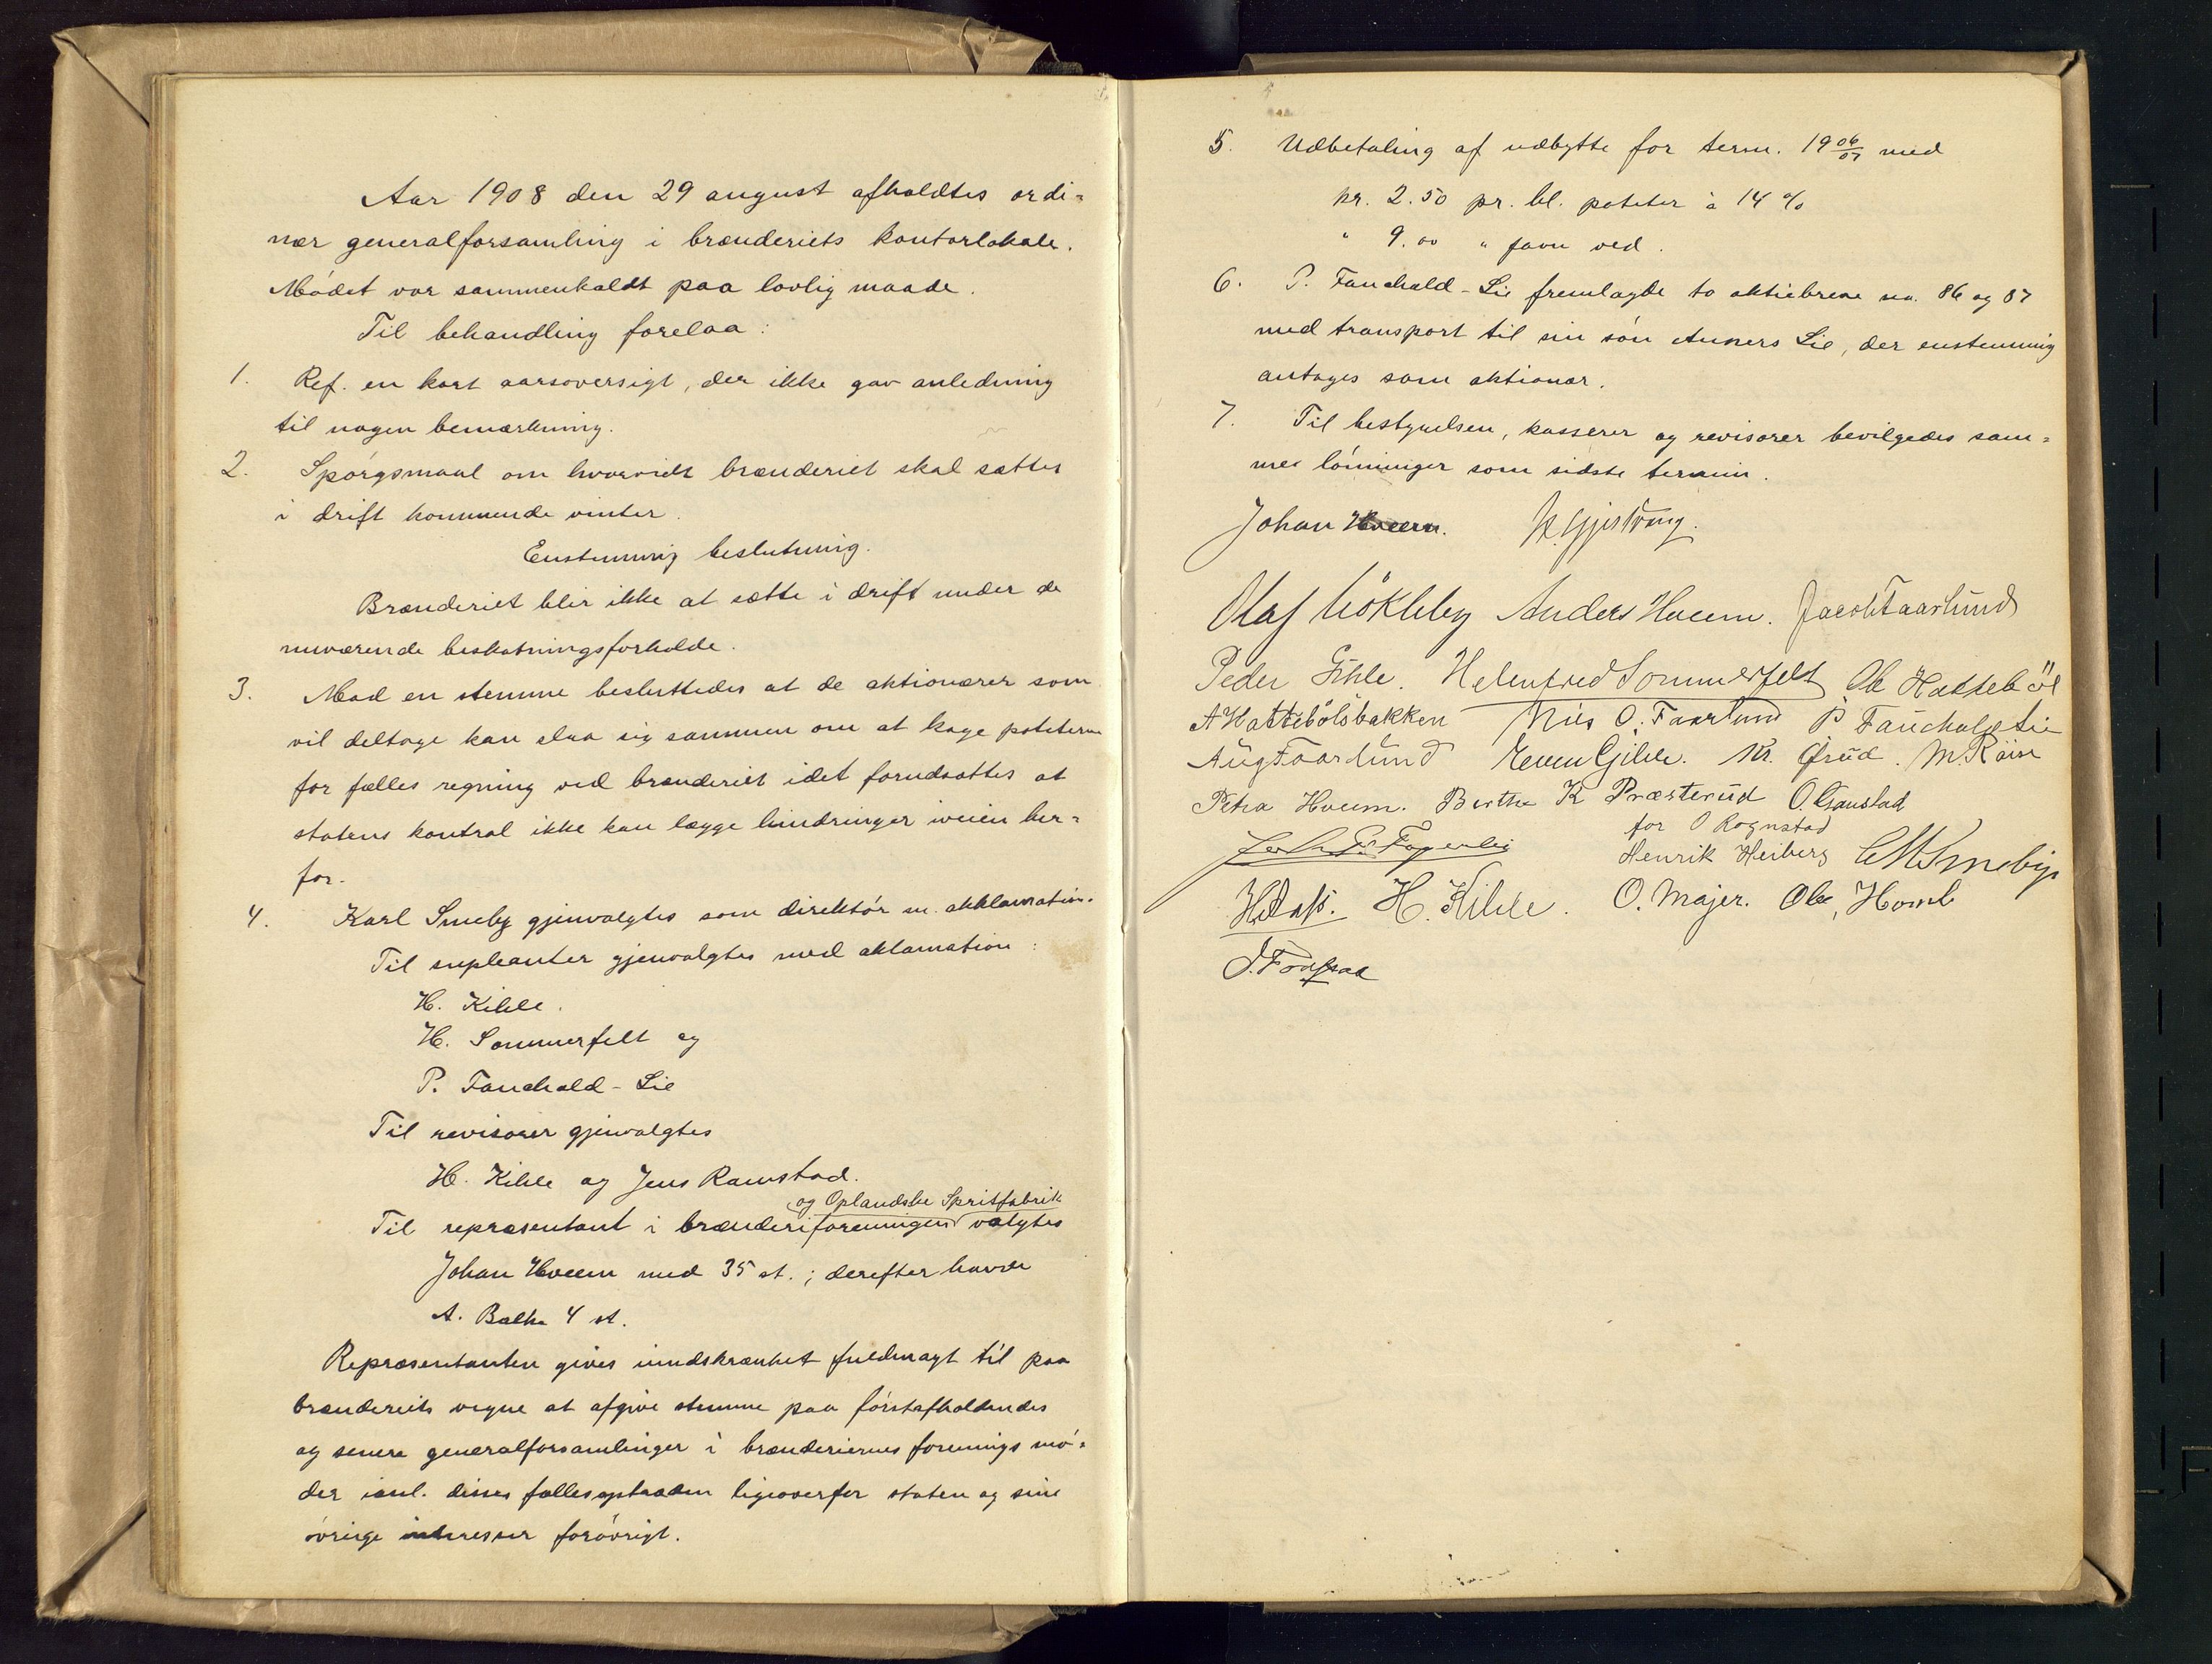 Aar 1908 den 29 august afholdtes ordi=
nær generalforsamling i brænderiets kontorlokale.
Mödet var sammenkaldt paa lovlig maade.
Til behandling forelaa:
1. Ref. en kort aarsoversigt, der ikke gav anledning
til nogen bemærkning.
2. Spörgsmaal om hvorvidt brænderiet skal sættes
i drift kommende vinter.
Enstemmig beslutning.
Brænderiet blir ikke at sætte i drift under de
nuværende beskatningsforholde.
3. Mod en stemme besluttedes at de aktionærer som
vil deltage kan slaa sig sammen om at koge poteterne
for fælles regning ved brænderiet idet forudsættes at
statens kontrol ikke kan lægge hindringer iveien her=
for.
4. Karl Smeby gjenvalgtes som direktör m. akklamation.
Til supleanter gjenvalgtes med aklamation:
H. Kihle.
H. Sommerfelt og
P. Fauchald-Lie
Til revisorer gjenvalgtes
H. Kihle og Jens Ramstad.
og Oplandske Spritfabrik
Til repræsentant i brænderiforeningen valgtes
Johan Hveem med 35 st.; derefter havde
A. Balke 4 st.
Repræsentanten gives uindskrænket fuldmagt til paa
brænderiets vegne at afgive stemme paa förstafholdendes
og senere generalforsamlinger i brænderiernes forenings mö=
der inkl. disses fællesoptræden ligeoverfor staten og sine
övrige interesser forövrigt.
5. Udbetaling af udbytte for term. 19 06/07 med
kr. 2.50 pr. hl. poteter à 14 %
" 9.00 " favn ved.
6. P. Fauchald-Lie fremlagde to aktiebreve no. 86 og 87
med transport til sin sön Anners Lie, der enstemmig
antoges som aktionær.
7. Til bestyrelsen, kasserer og revisorer bevilgedes sam=
me lönninger som sidste termin.
Johan Hveem.
Olaf Kökleby Anders Hveem. Jacob Faarlund
Peder Gihle. Helmfred Sommerfelt Ole Hatteböl
A Hattebölsbakken Nils O. Faarlund P Fauchald Lie
Aug Faarlund Even Gihle. M. Röise
Petra Hveem. Berthe K Præsterud O. Gaustad
for O Rognstad
Henrik Heiberg CM Smeby
H. Kihle. O. Majer. Ole Homb